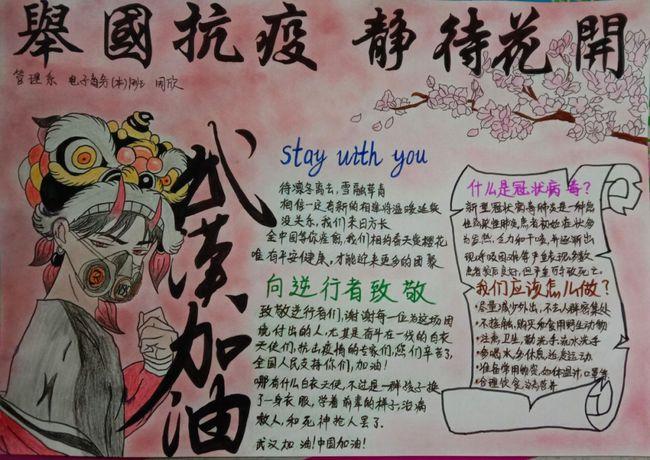 舉國抗疫 靜待花開
管理系 电子商务(本)1班 周欣
武漢加油
stay with you
待凛冬离去,雪融草青
相信一定有新的相逢将温暖延续
没关系,我们来日方长
全中国等你痊愈,我们相约春天赏樱花
唯有平安健康,才能迎来更多的团聚
向逆行者致敬
致敬逆行者们,谢谢每一位为这场困
境付出的人,尤其是奋斗在一线的白衣
天使们,抗击疫情的专家们,您们辛苦了,
全国人民支持你们,加油!
哪有什么白衣天使,不过是一群孩子换
了一身衣服,学着前辈的样子,治病
救人,和死神抢人罢了.
武汉加油!中国加油!
什么是冠状病毒?
新型冠状病毒肺炎是一种急
性感染性肺炎,患者初始症状多
为发热、乏力和干咳,并逐渐出
现呼吸困难等严重表现.多数
患者预后良好,但严重可导致死亡.
我们应该怎么做?
·尽量减少外出,不去人群密集处
·不接触,购买和食用野生动物
·注意卫生,勤洗手流水洗手
·多喝水多休息适度运动
·准备常用物资,如体温计,口罩等
·合理饮食,注意营养